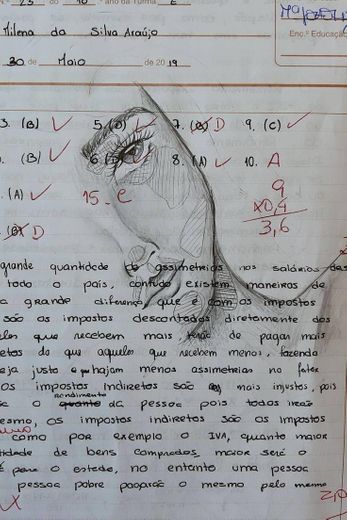 Nº 23 do 10 º ano da Turma E
Milena da Silva Araújo
Enc.º Educação
30 de Maio de 2019
3. (B) 5. (D) 7. (B) D 9. (C)
(B) 6. 8. (A) 10. A
(A) 15. C 9
x0,4
(B) D 3,6
grande quantidade de assimetrias nos salários das
todo o país, contudo existem maneiras de
a grande diferença que é com os impostos
são os impostos descontados diretamente dos
que recebem mais terão de pagar mais
do que aqueles que recebem menos, fazendo
seja justo e hajam menos assimetrias no
os impostos indiretos são mais injustos, pois
o rendimento quanto da pessoa pois todos irão
mesmo, os impostos indiretos são os impostos
como por exemplo o IVA, quanto maior
quantidade de bens comprados, maior será o
para o estado, no entanto uma pessoa
pessoa pobre pagarão o mesmo pelo mesmo